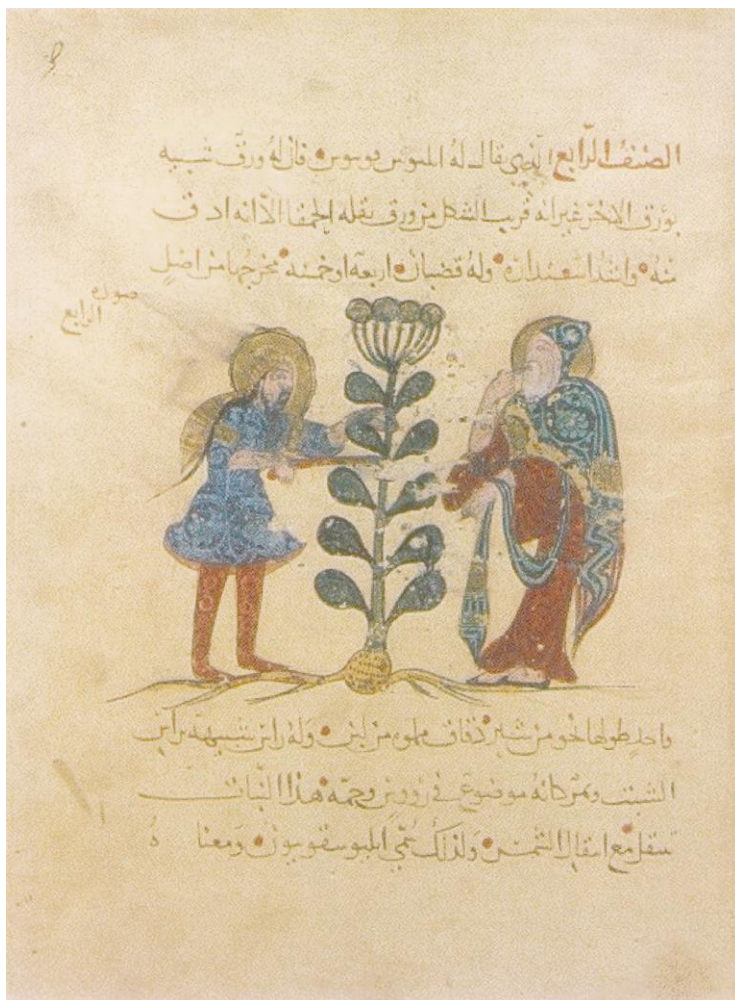 الصنف الرابع الذي يقال له فان له ورق شبيه
بورق الاخر غير انه قريب الشكل من ورق بقله الحمقا الا انه ادق
منه واشد استدارة وله قضبان اربعه او خمسه مخرجها من اصل
صورة
الرابع
واحد طولها نحو من شبر دقاق مملوه من لبن وله راس شبيهه براس
الشبت وثمر كانه موضوع في رووس وجمه هذا النبات
تنتقل مع انتقال الشمس ولذلك سمي ومعناه